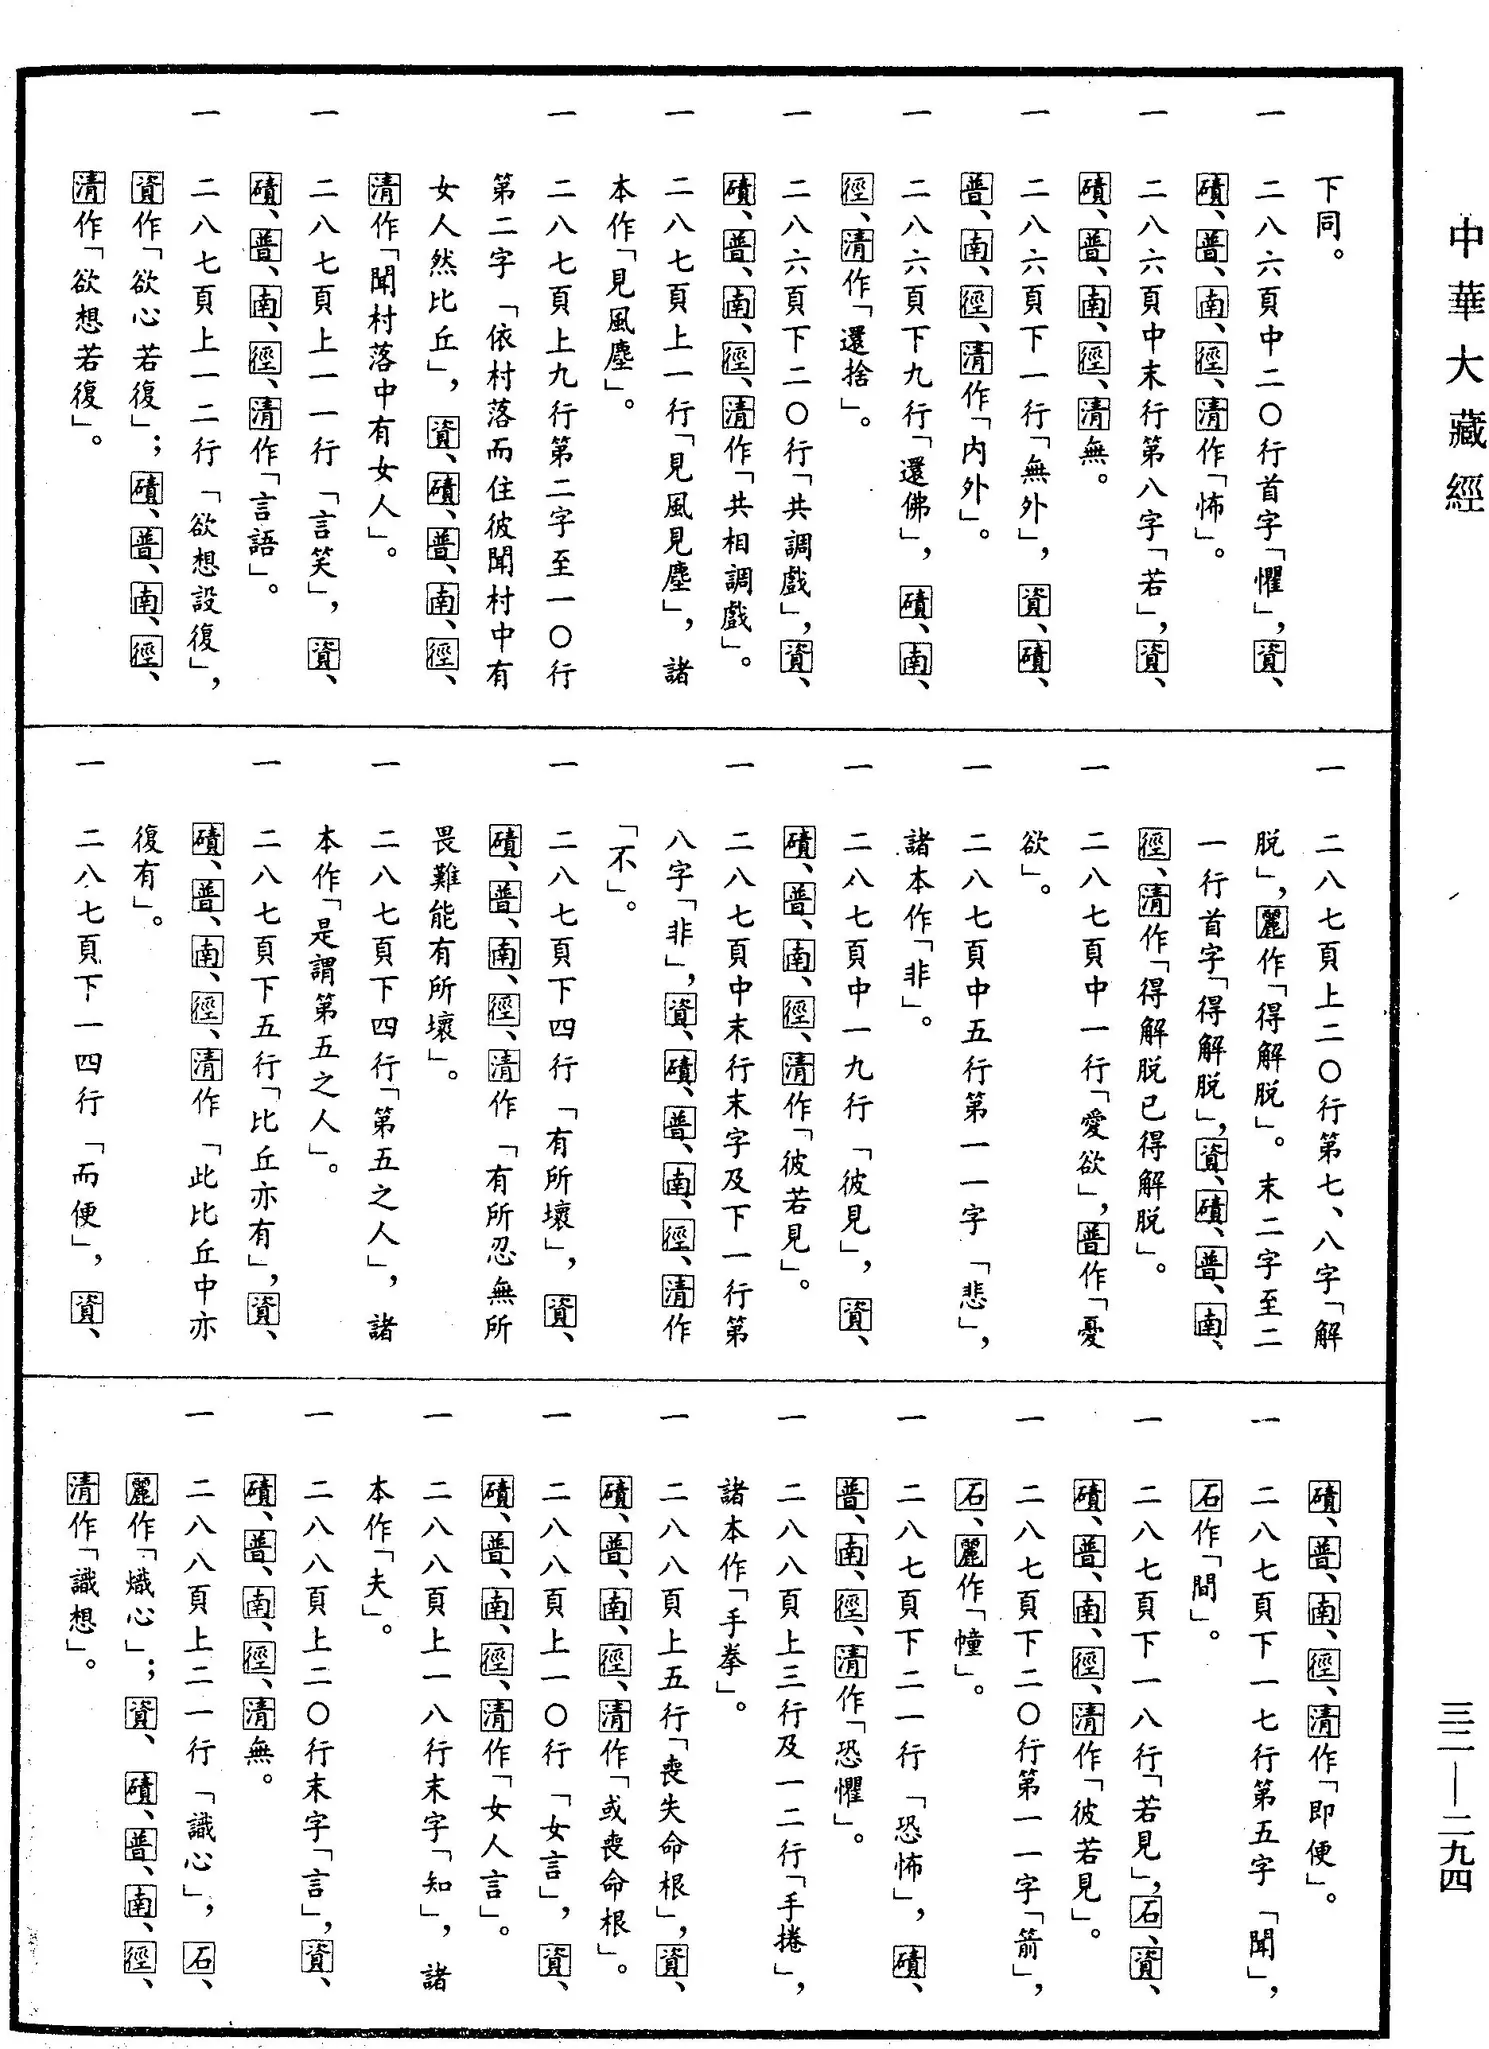 中華大藏經
三二—二九四
下同。
一 二八六頁中二〇行首字「懼」，資、
磧、普、南、徑、清作「怖」。
一 二八六頁中末行第八字「若」，資、
磧、普、南、徑、清無。
一 二八六頁下一行「無外」，資、磧、
普、南、徑、清作「內外」。
一 二八六頁下九行「還佛」，磧、南、
徑、清作「還捨」。
一 二八六頁下二〇行「共調戲」，資、
磧、普、南、徑、清作「共相調戲」。
一 二八七頁上一行「見風見塵」，諸
本作「見風塵」。
一 二八七頁上九行第二字至一〇行
第二字「依村落而住彼聞村中有
女人然比丘」，資、磧、普、南、徑、
清作「聞村落中有女人」。
一 二八七頁上一一行「言笑」，資、
磧、普、南、徑、清作「言語」。
一 二八七頁上一二行「欲想設復」，
資作「欲心若復」；磧、普、南、徑、
清作「欲想若復」。
一 二八七頁上二〇行第七、八字「解
脱」，麗作「得解脱」。末二字至二
一行首字「得解脱」，資、磧、普、南、
徑、清作「得解脱已得解脱」。
一 二八七頁中一行「愛欲」，普作「憂
欲」。
一 二八七頁中五行第一一字「悲」，
諸本作「非」。
一 二八七頁中一九行「彼見」，資、
磧、普、南、徑、清作「彼若見」。
一 二八七頁中末行末字及下一行第
八字「非」，資、磧、普、南、徑、清作
「不」。
一 二八七頁下四行「有所壞」，資、
磧、普、南、徑、清作「有所忍無所
畏難能有所壞」。
一 二八七頁下四行「第五之人」，諸
本作「是謂第五之人」。
一 二八七頁下五行「比丘亦有」，資、
磧、普、南、徑、清作「此比丘中亦
復有」。
一 二八七頁下一四行「而便」，資、
磧、普、南、徑、清作「即便」。
一 二八七頁下一七行第五字「聞」，
石作「間」。
一 二八七頁下一八行「若見」，石、資、
磧、普、南、徑、清作「彼若見」。
一 二八七頁下二〇行第一一字「箭」，
石、麗作「幢」。
一 二八七頁下二一行「恐怖」，磧、
普、南、徑、清作「恐懼」。
一 二八八頁上三行及一二行「手捲」，
諸本作「手拳」。
一 二八八頁上五行「喪失命根」，資、
磧、普、南、徑、清作「或喪命根」。
一 二八八頁上一〇行「女言」，資、
磧、普、南、徑、清作「女人言」。
一 二八八頁上一八行末字「知」，諸
本作「夫」。
一 二八八頁上二〇行末字「言」，資、
磧、普、南、徑、清無。
一 二八八頁上二一行「識心」，石、
麗作「熾心」；資、磧、普、南、徑、
清作「識想」。